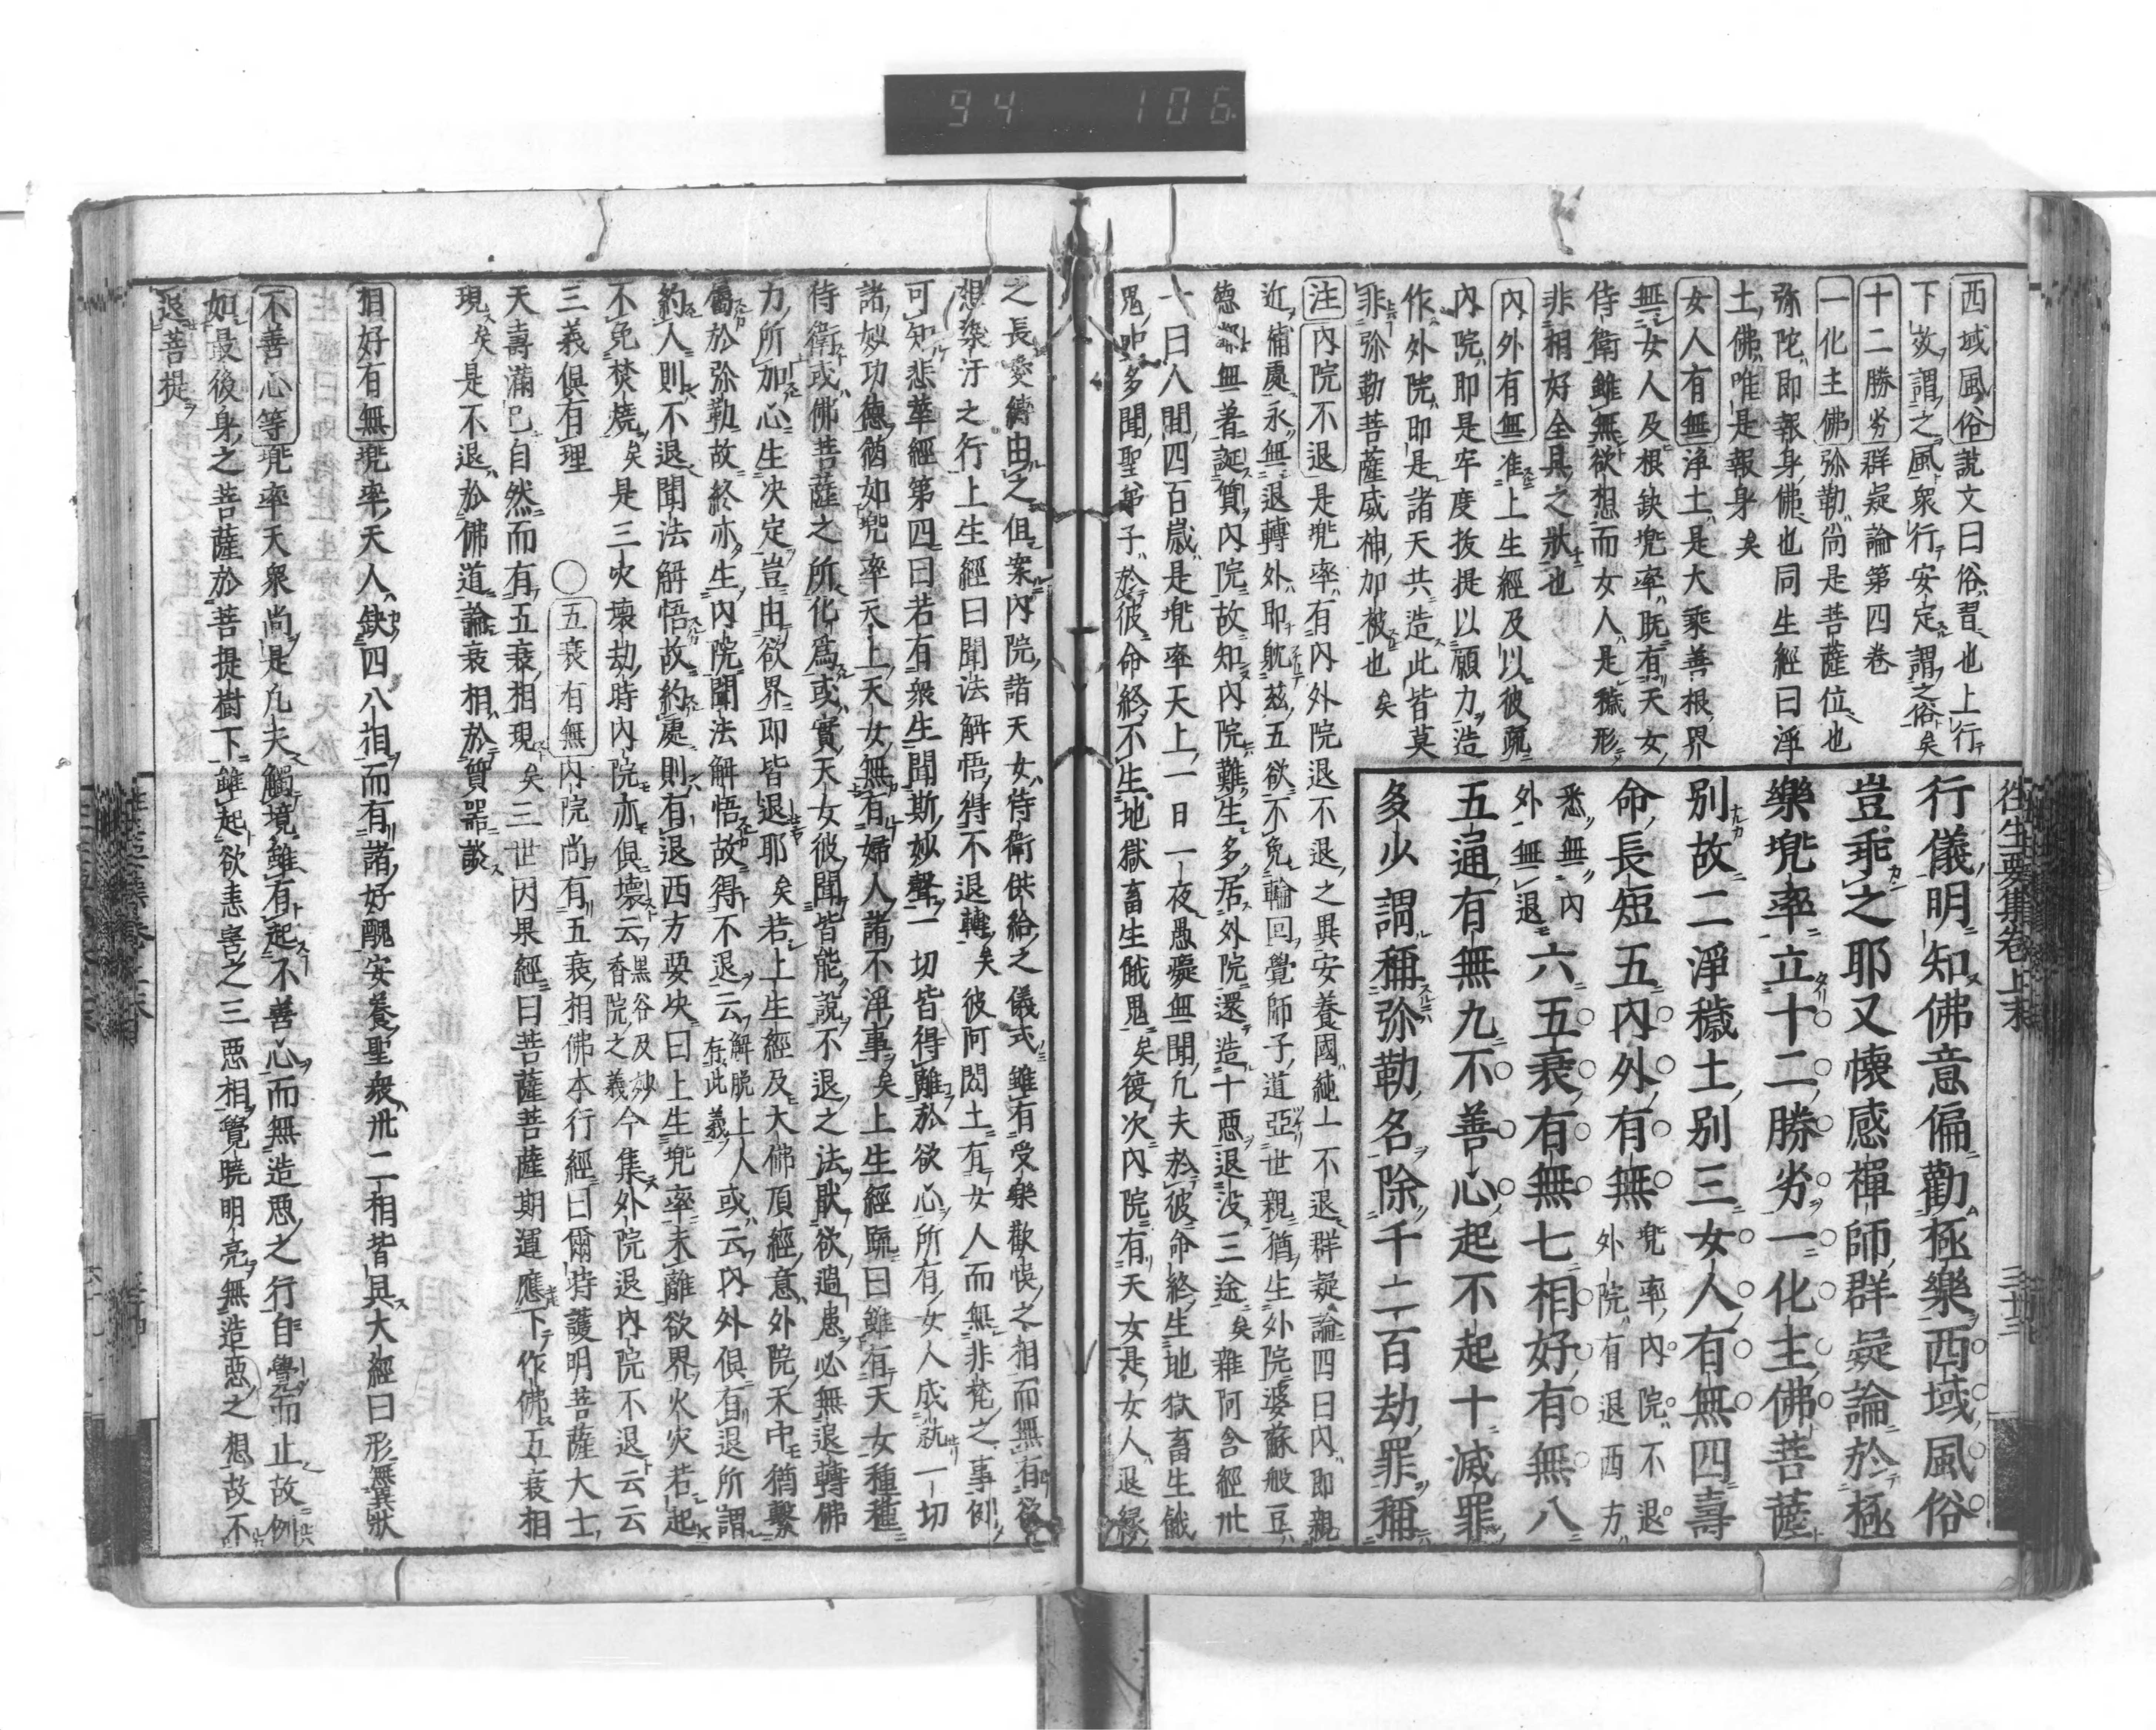 94 106
往生要集卷上末 三十三
西域風俗說文曰俗習也上行
下效謂之風衆行安定謂之俗矣
十二勝劣群疑論第四卷
一化主佛弥勒尚是菩薩位也
弥陀即報身佛也同生經曰淨
土佛唯是報身矣
女人有無淨土是大乘善根界
無女人及根缺兜率既有天女
侍衛雖無欲想而女人是穢形
非相好全具之狀也
內外有無准上生經及以彼疏
內院即是牢度抜提以願力造
作外院即是諸天共造此皆莫
非弥勒菩薩威神加被也矣
行儀明知佛意偏勸極樂西域風俗
豈乖之耶又懷感禪師群疑論於極
樂兜率立十二勝劣一化主佛菩薩
別故二淨穢土別三女人有無四壽
命長短五內外有無兜率內院不退
外院有退西方
悉無內
外無退六五衰有無七相好有無八
五通有無九不善心起不起十滅罪
多少謂稱弥勒名除千二百劫罪稱
注內院不退是兜率有內外院退不退之異安養國純一不退群疑論四曰內即親
近補處永無退轉外即躭玆五欲不免輪回覺師子道亞世親猶生外院婆蘇般豆
德無著誕質內院故知內院難生多居外院還造十惡退沒三途矣雜阿含經卅
一曰人間四百歲是兜率天上一日一夜愚癡無聞凡夫於彼命終生地獄畜生餓
鬼中多聞聖弟子於彼命終不生地獄畜生餓鬼矣復次內院有天女是女人退緣
之長愛縛由之但案內院諸天女侍衛供給之儀式雖有受樂歡悞之相而無有欲
想染汙之行上生經曰聞法解悟得不退轉矣彼阿閦土有女人而無非梵之事例
可知悲華經第四曰若有衆生聞斯妙聲一切皆得離於欲心所有女人成就一切
諸妙功德猶如兜率天上天女無有婦人諸不淨事矣上生經疏曰雖有天女種種
侍衛或佛菩薩之所化爲或實天女彼聞皆能說不退之法厭欲過患必無退轉佛
力所加心生決定豈由欲界即皆退耶矣若上生經及大佛頂經意外院禾中猶繫
屬於弥勒故終亦生內院聞法解悟故得不退云解脫上人
存此義或云內外俱有退所謂
約人則不退聞法解悟故約處則有退西方要決曰上生兜率未離欲界火災若起
不免焚燒矣是三災壞劫時內院亦俱壞云黑谷及妙
香院之義今集外院退內院不退云云
三義俱有理 ○五衰有無內院尚有五衰相佛本行經曰爾時護明菩薩大士
天壽滿已自然而有五衰相現矣三世因果經曰菩薩菩薩期運應下作佛五衰相
現矣是不退於佛道論衰相於質器談
相好有無兜率天人缺四八相而有諸好醜安養聖衆卅二相皆具大經曰形無異狀
不善心等兜率天衆尚是凡夫觸境雖有起不善心而無造惡之行自覺而止故例
如最後身之菩薩於菩提樹下雖起欲恚害之三惡相覺曉明亮無造惡之想故不
退菩提